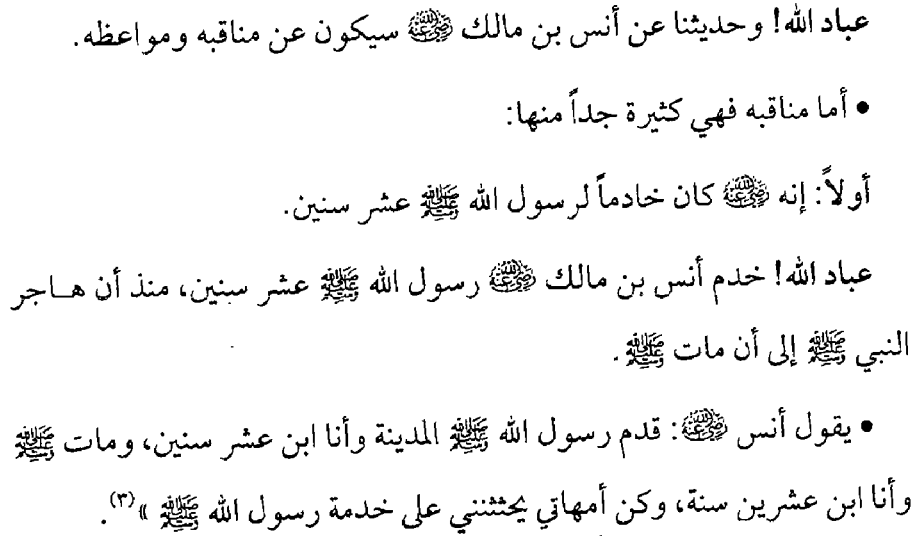 عباد الله! وحديثنا عن أنس بن مالك رضي الله عنه سيكون عن مناقبه ومواعظه.
• أما مناقبه فهي كثيرة جداً منها:
أولاً: إنه رضي الله عنه كان خادماً لرسول الله ﷺ عشر سنين.
عباد الله! خدم أنس بن مالك رضي الله عنه رسول الله ﷺ عشر سنين، منذ أن هـاجر
النبي ﷺ إلى أن مات ﷺ.
• يقول أنس رضي الله عنه: قدم رسول الله ﷺ المدينة وأنا ابن عشر سنين، ومات ﷺ
وأنا ابن عشرين سنة، وكن أمهاتي يحثثنني على خدمة رسول الله ﷺ »(٣).